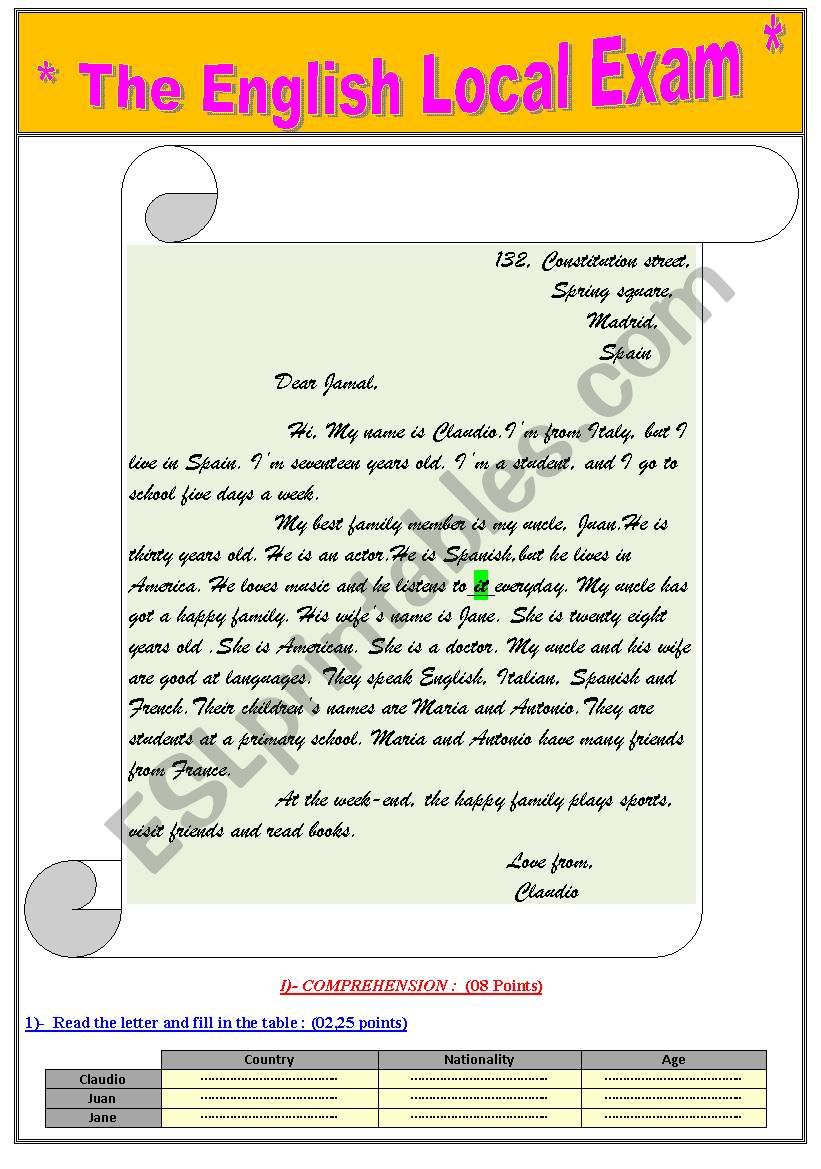 * The English Local Exam *
132, Constitution street,
Spring square,
Madrid,
Spain
Dear Jamal,
Hi, My name is Claudio.I'm from Italy, but I
live in Spain. I'm seventeen years old. I'm a student, and I go to
school five days a week.
My best family member is my uncle, Juan.He is
thirty years old. He is an actor.He is Spanish,but he lives in
America. He loves music and he listens to it everyday. My uncle has
got a happy family. His wife's name is Jane. She is twenty eight
years old .She is American. She is a doctor. My uncle and his wife
are good at languages. They speak English, Italian, Spanish and
French.Their children's names are Maria and Antonio.They are
students at a primary school. Maria and Antonio have many friends
from France.
At the week-end, the happy family plays sports,
visit friends and read books.
Love from,
Claudio
ESLprintables.com
I)- COMPREHENSION : (08 Points)
1)- Read the letter and fill in the table : (02,25 points)
Country Nationality Age
Claudio
Juan
Jane